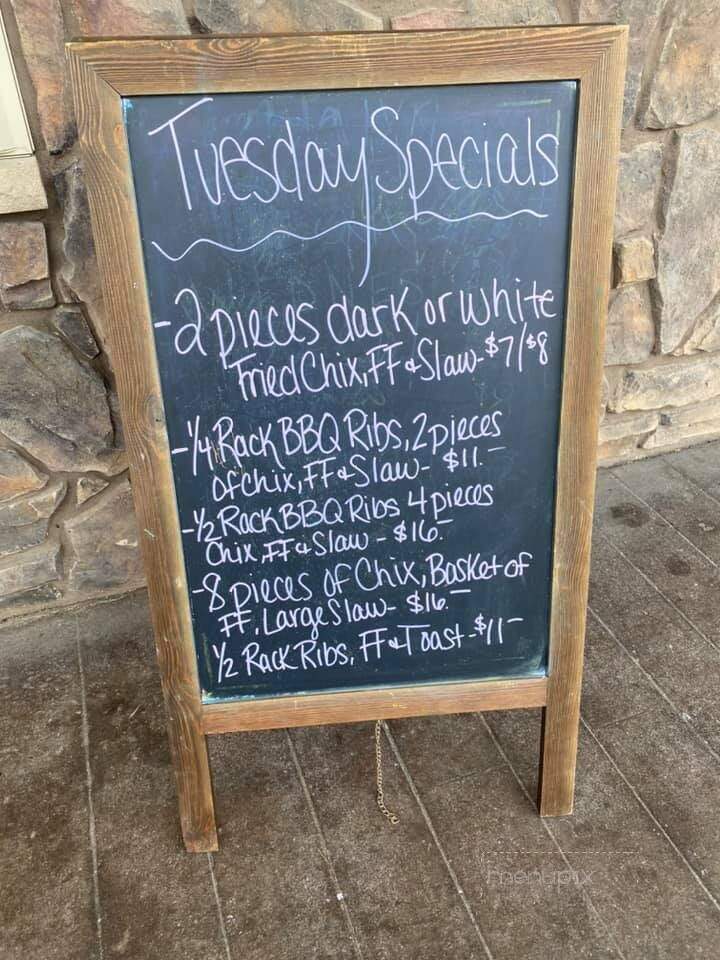 Tuesday Specials
-2 pieces dark or white
Fried Chix, FF & Slaw- $7/$8
-1/4 Rack BBQ Ribs, 2 pieces
of chix, FF & Slaw- $11.-
-1/2 Rack BBQ Ribs 4 pieces
Chix, FF & Slaw - $16.-
-8 pieces of Chix, Basket of
FF, Large Slaw- $16.-
1/2 Rack Ribs, FF & Toast -$11-
menupix